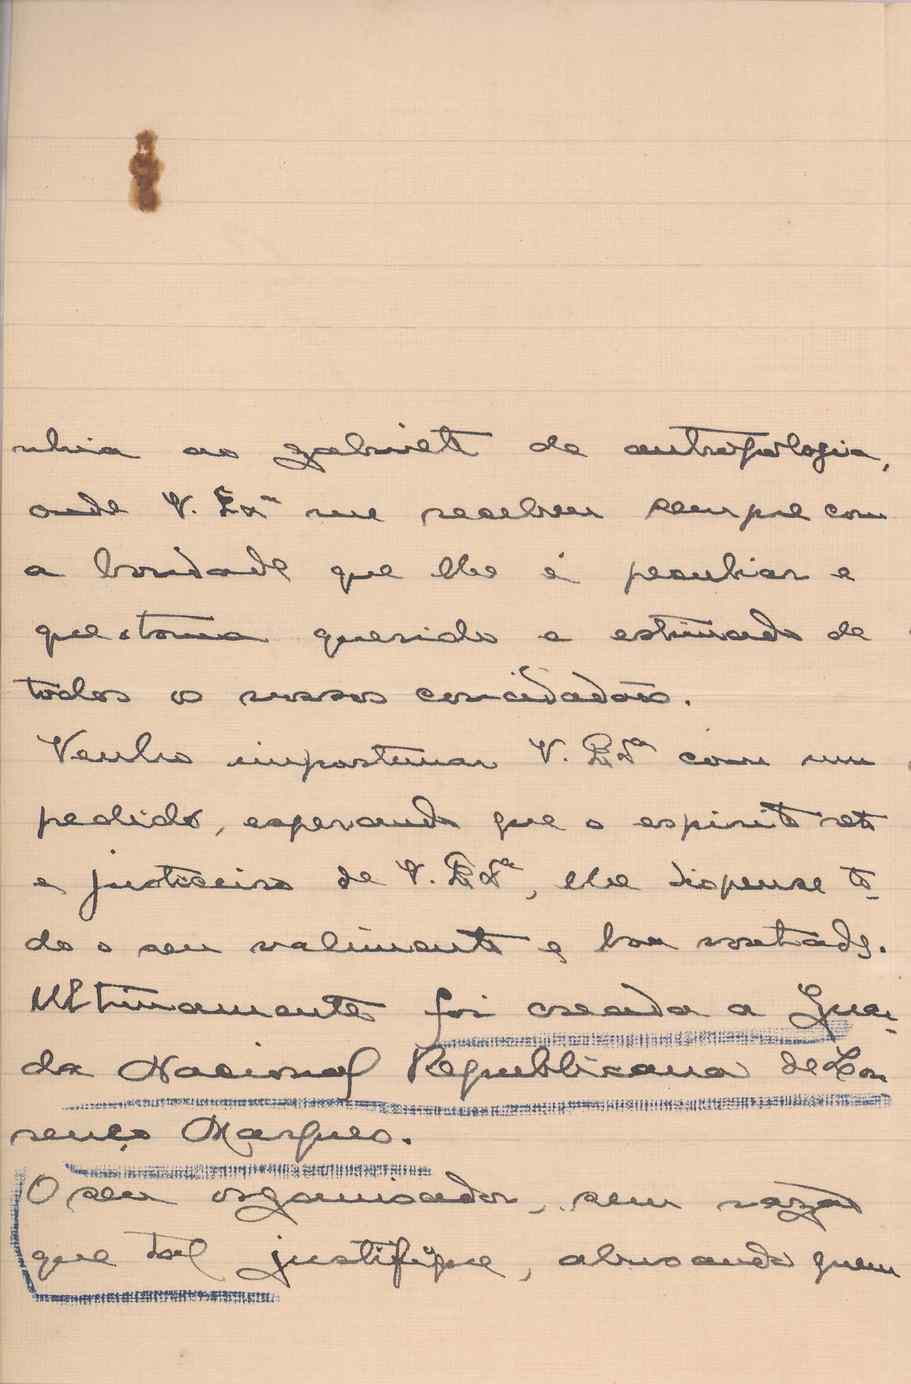 nhia ao gabinete de antropologia,
onde V. Exª me recebeu sempre com
a bondade que lhe é peculiar e
que o torna querido e estimado de
todos os nossos concidadãos.
Venho importunar V. Exª com um
pedido, esperando que o espirito reto
e justiceiro de V. Exª, lhe dispense to-
do o seu valimento e boa vontade.
Ultimamente foi creada a Guar-
da Nacional Republicana de Lou
renço Marques.
O seu organisador, sem razão
que tal justifique, abusando quem